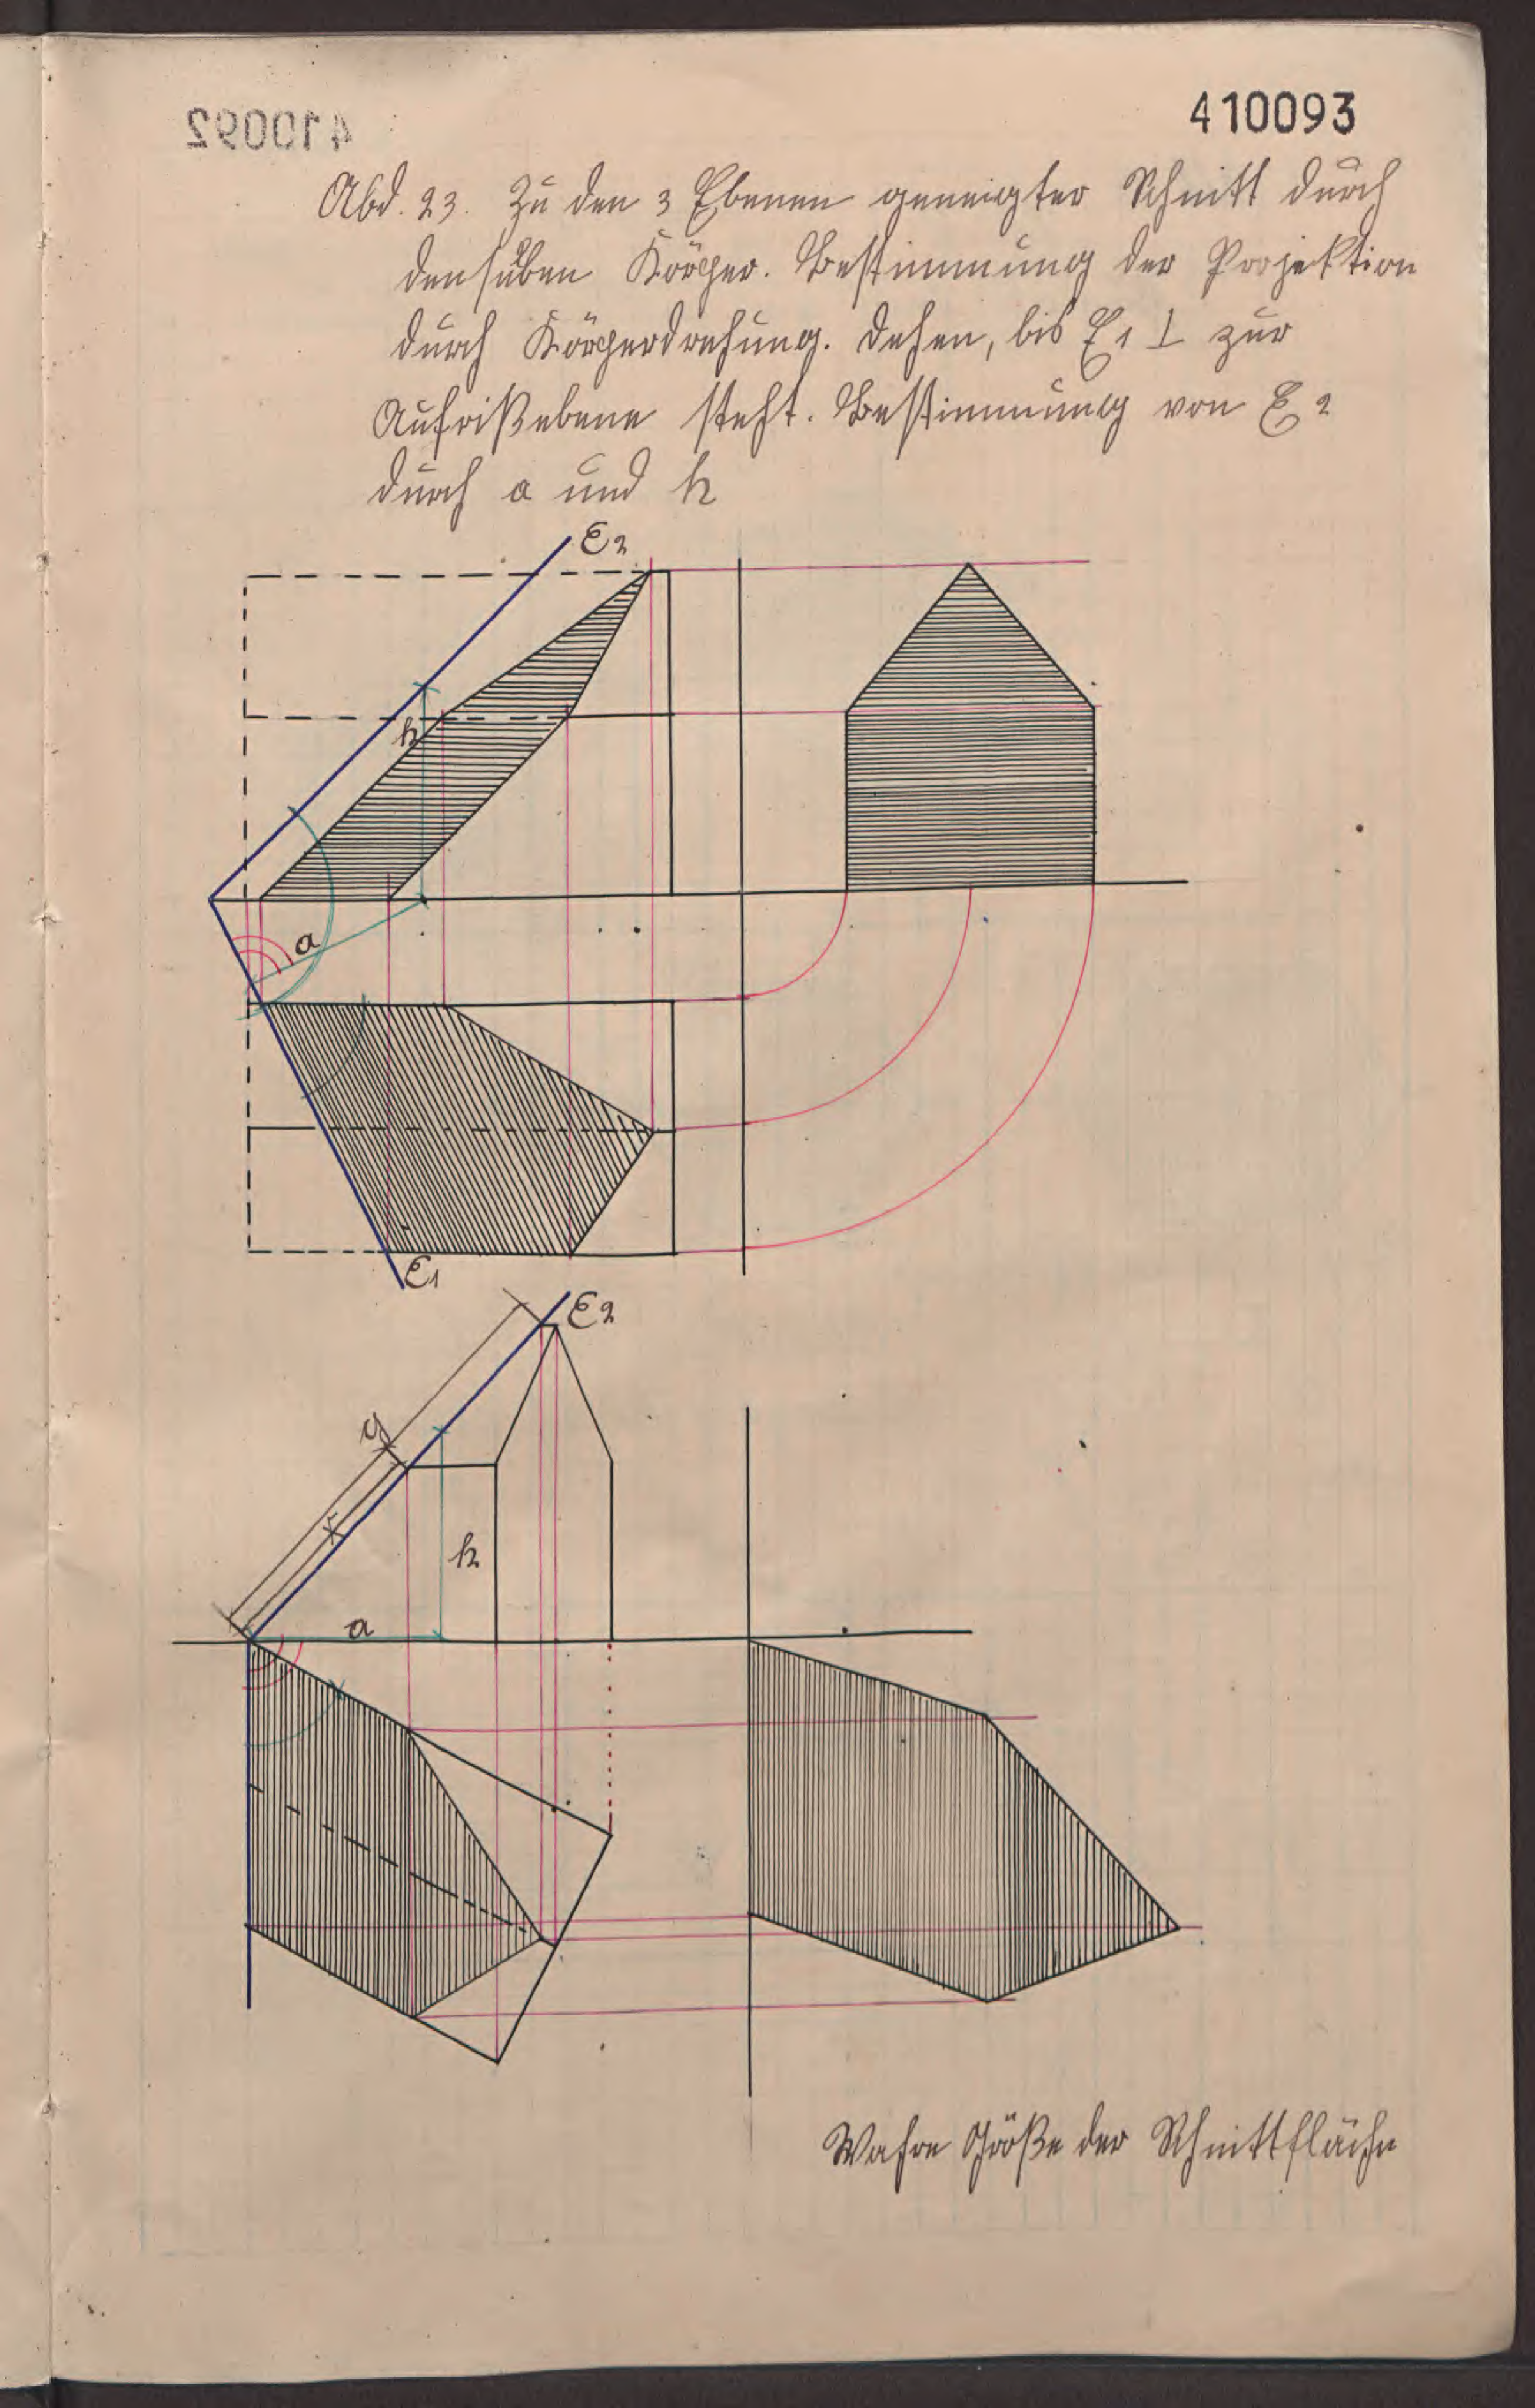 410092
410093
Abd. 23. Zu den 3 Ebenen geneigter Schnitt durch
denselben Körper. Bestimmung der Projektion
durch Körperdrehung. Dehen, bis E1 ⊥ zur
Aufrißebene steht. Bestimmung von E2
durch a und h
E2
h
a
E1
E2
y
x
h
a
Wahre Größe der Schnittfläche